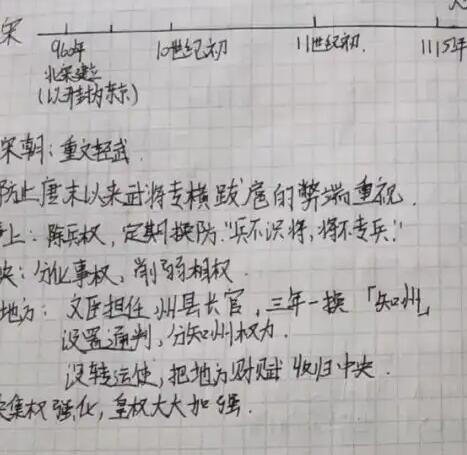 宋
960年 10世纪初 11世纪初. 1115年
北宋建立
(以开封为东京)
宋朝:重文轻武.
防止唐末以来武将专横跋扈的弊端重视.
上:陈兵权,定期换防."兵不识将,将不专兵!"
央:分化事权,削弱相权.
地方: 文臣担任州县长官,三年一换「知州」
设置通判,分知州权力.
设转运使,把地方财赋收归中央.
集权强化,皇权大大加强.